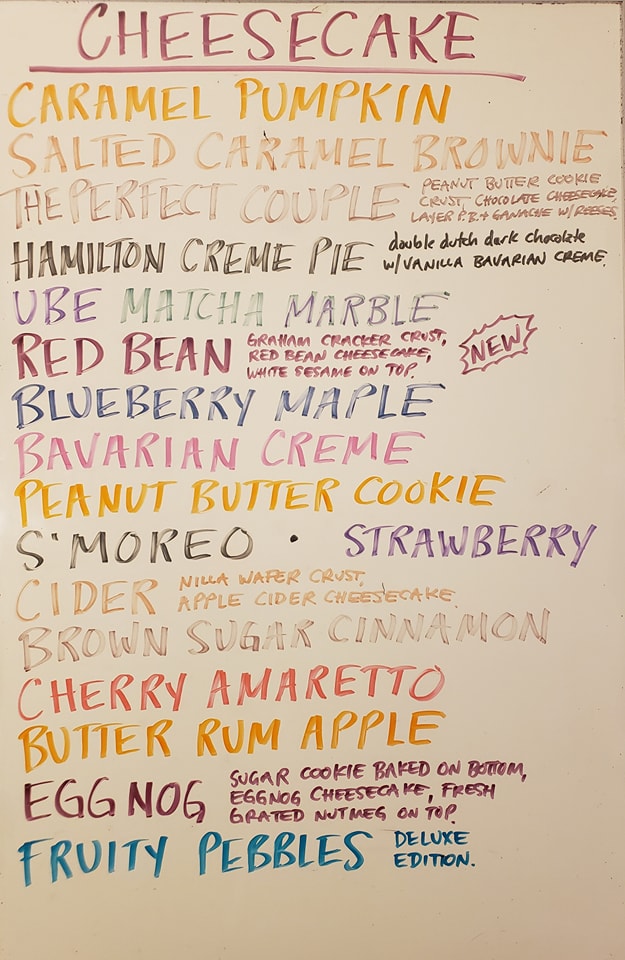 CHEESECAKE
CARAMEL PUMPKIN
SALTED CARAMEL BROWNIE
THE PERFECT COUPLE
PEANUT BUTTER COOKIE
CRUST, CHOCOLATE CHEESECAKE,
LAYER P.B. + GANACHE W/REESES
HAMILTON CREME PIE
double dutch dark chocolate
W/VANILLA BAVARIAN CREME.
UBE MATCHA MARBLE
RED BEAN
GRAHAM CRACKER CRUST,
RED BEAN CHEESECAKE,
WHITE SESAME ON TOP.
NEW
BLUEBERRY MAPLE
BAVARIAN CREME
PEANUT BUTTER COOKIE
S'MOREO • STRAWBERRY
CIDER
NILLA WAFER CRUST,
APPLE CIDER CHEESECAKE.
BROWN SUGAR CINNAMON
CHERRY AMARETTO
BUTTER RUM APPLE
EGG NOG
SUGAR COOKIE BAKED ON BOTTOM,
EGGNOG CHEESECAKE, FRESH
GRATED NUTMEG ON TOP.
FRUITY PEBBLES
DELUXE
EDITION.